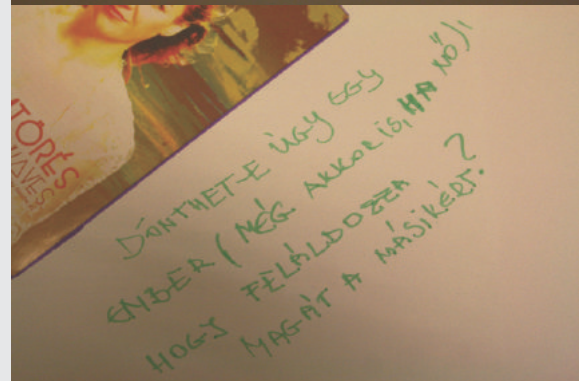 TÖRÉS
WAVES
DÖNTHET-E ÚGY EGY
EMBER (MÉG AKKOR IS, HA NŐ),
HOGY FELÁLDOZZA
MAGÁT A MÁSIKÉRT?